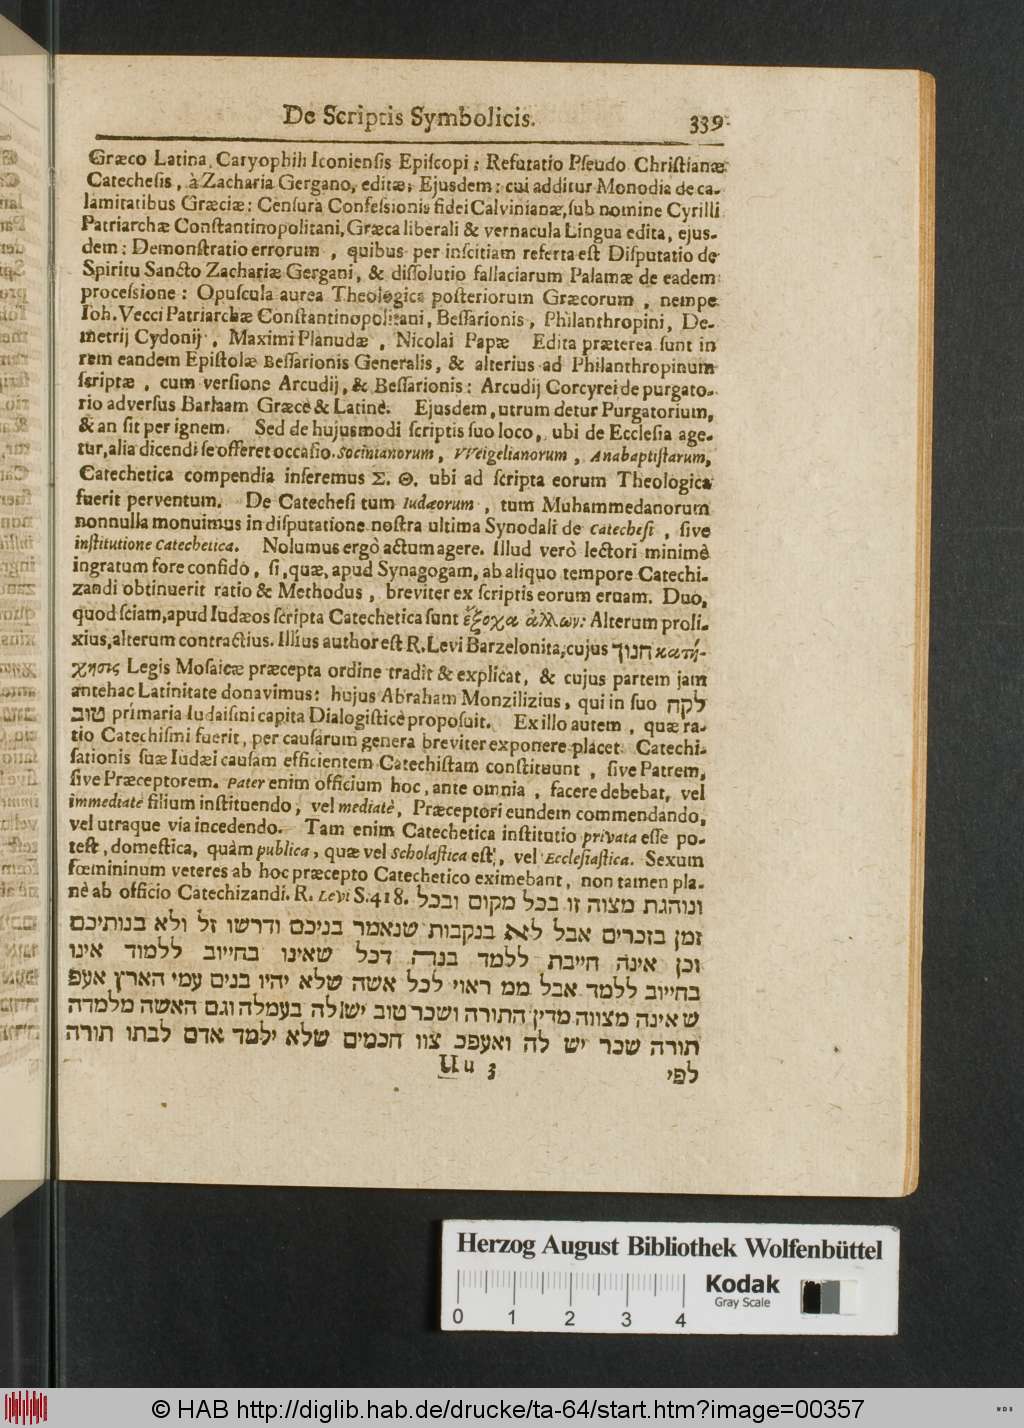 De Scriptis Symbolicis. 339
Græco Latina, Caryophili Iconiensis Episcopi; Refutatio Pseudo Christianæ
Catechesis, à Zacharia Gergano, editæ; Ejusdem: cui additur Monodia de ca-
lamitatibus Græciæ: Censura Confessionis fidei Calvinianæ, sub nomine Cyrilli
Patriarchæ Constantinopolitani, Græca liberali & vernacula Lingua edita, ejus-
dem: Demonstratio errorum, quibus per inscitiam referta est Disputatio de
Spiritu Sancto Zachariæ Gergani, & dissolutio fallaciarum Palamæ de eadem
processione: Opuscula aurea Theologica posteriorum Græcorum, nempe
Ioh. Vecci Patriarchæ Constantinopolitani, Bessarionis, Philanthropini, De-
metrij Cydonij, Maximi Planudæ, Nicolai Papæ Edita præterea sunt in
rem eandem Epistolæ Bessarionis Generalis, & alterius ad Philanthropinum
scriptæ, cum versione Arcudij, & Bessarionis: Arcudij Corcyrei de purgato-
rio adversus Barlaam Græcè & Latinè. Ejusdem, utrum detur Purgatorium,
& an sit per ignem. Sed de hujusmodi scriptis suo loco, ubi de Ecclesia age-
tur, alia dicendi se offeret occasio. Socinianorum, VVeigelianorum, Anabaptistarum,
Catechetica compendia inseremus Σ. Θ. ubi ad scripta eorum Theologica
fuerit perventum. De Catechesi tum Iudæorum, tum Muhammedanorum
nonnulla monuimus in disputatione nostra ultima Synodali de Catechesi, sive
institutione Catechetica. Nolumus ergò actum agere. Illud verò lectori minimè
ingratum fore confido, si, quæ, apud Synagogam, ab aliquo tempore Catechi-
zandi obtinuerit ratio & Methodus, breviter ex scriptis eorum eruam. Duo,
quod sciam, apud Iudæos scripta Catechetica sunt ἔξοχα ἄλλων: Alterum proli-
xius, alterum contractius. Illius author est R. Levi Barzelonita, cujus חנוך κατή-
χησις Legis Mosaicæ præcepta ordine tradit & explicat, & cujus partem jam
antehac Latinitate donavimus: hujus Abraham Monzilizius, qui in suo לקח
טוב primaria Iudaismi capita Dialogisticè proposuit. Ex illo autem, quæ ra-
tio Catechismi fuerit, per causarum genera breviter exponere placet. Catechi-
sationis suæ Iudæi causam efficientem Catechistam constituunt, sive Patrem,
sive Præceptorem. Pater enim officium hoc, ante omnia, facere debebat, vel
immediatè filium instituendo, vel mediatè, Præceptori eundem commendando,
vel utraque via incedendo. Tam enim Catechetica institutio privata esse po-
test, domestica, quàm publica, quæ vel Scholastica est, vel Ecclesiastica. Sexum
fœmininum veteres ab hoc præcepto Catechetico eximebant, non tamen pla-
nè ab officio Catechizandi. R. Levi S. 418. ונוהגת מצוה זו בכל מקום ובכל
זמן בזכרים אבל לא בנקבות שנאמר בניכם ודרשו זל ולא בנותיכם
וכן אינה חייבת ללמד בנה דכל שאינו בחייוב ללמוד אינו
בחייוב ללמד אבל ממ ראוי לכל אשה שלא יהיו בנים עמי הארץ אעפ
שאינה מצווה מדין התורה ושכר טוב יש לה בעמלה וגם האשה מלמדה
תורה שכר יש לה ואעפכ צוו חכמים שלא ילמד אדם לבתו תורה
Uu 3 לפי
Herzog August Bibliothek Wolfenbüttel
Kodak
Gray Scale
0 1 2 3 4
© HAB http://diglib.hab.de/drucke/ta-64/start.htm?image=00357